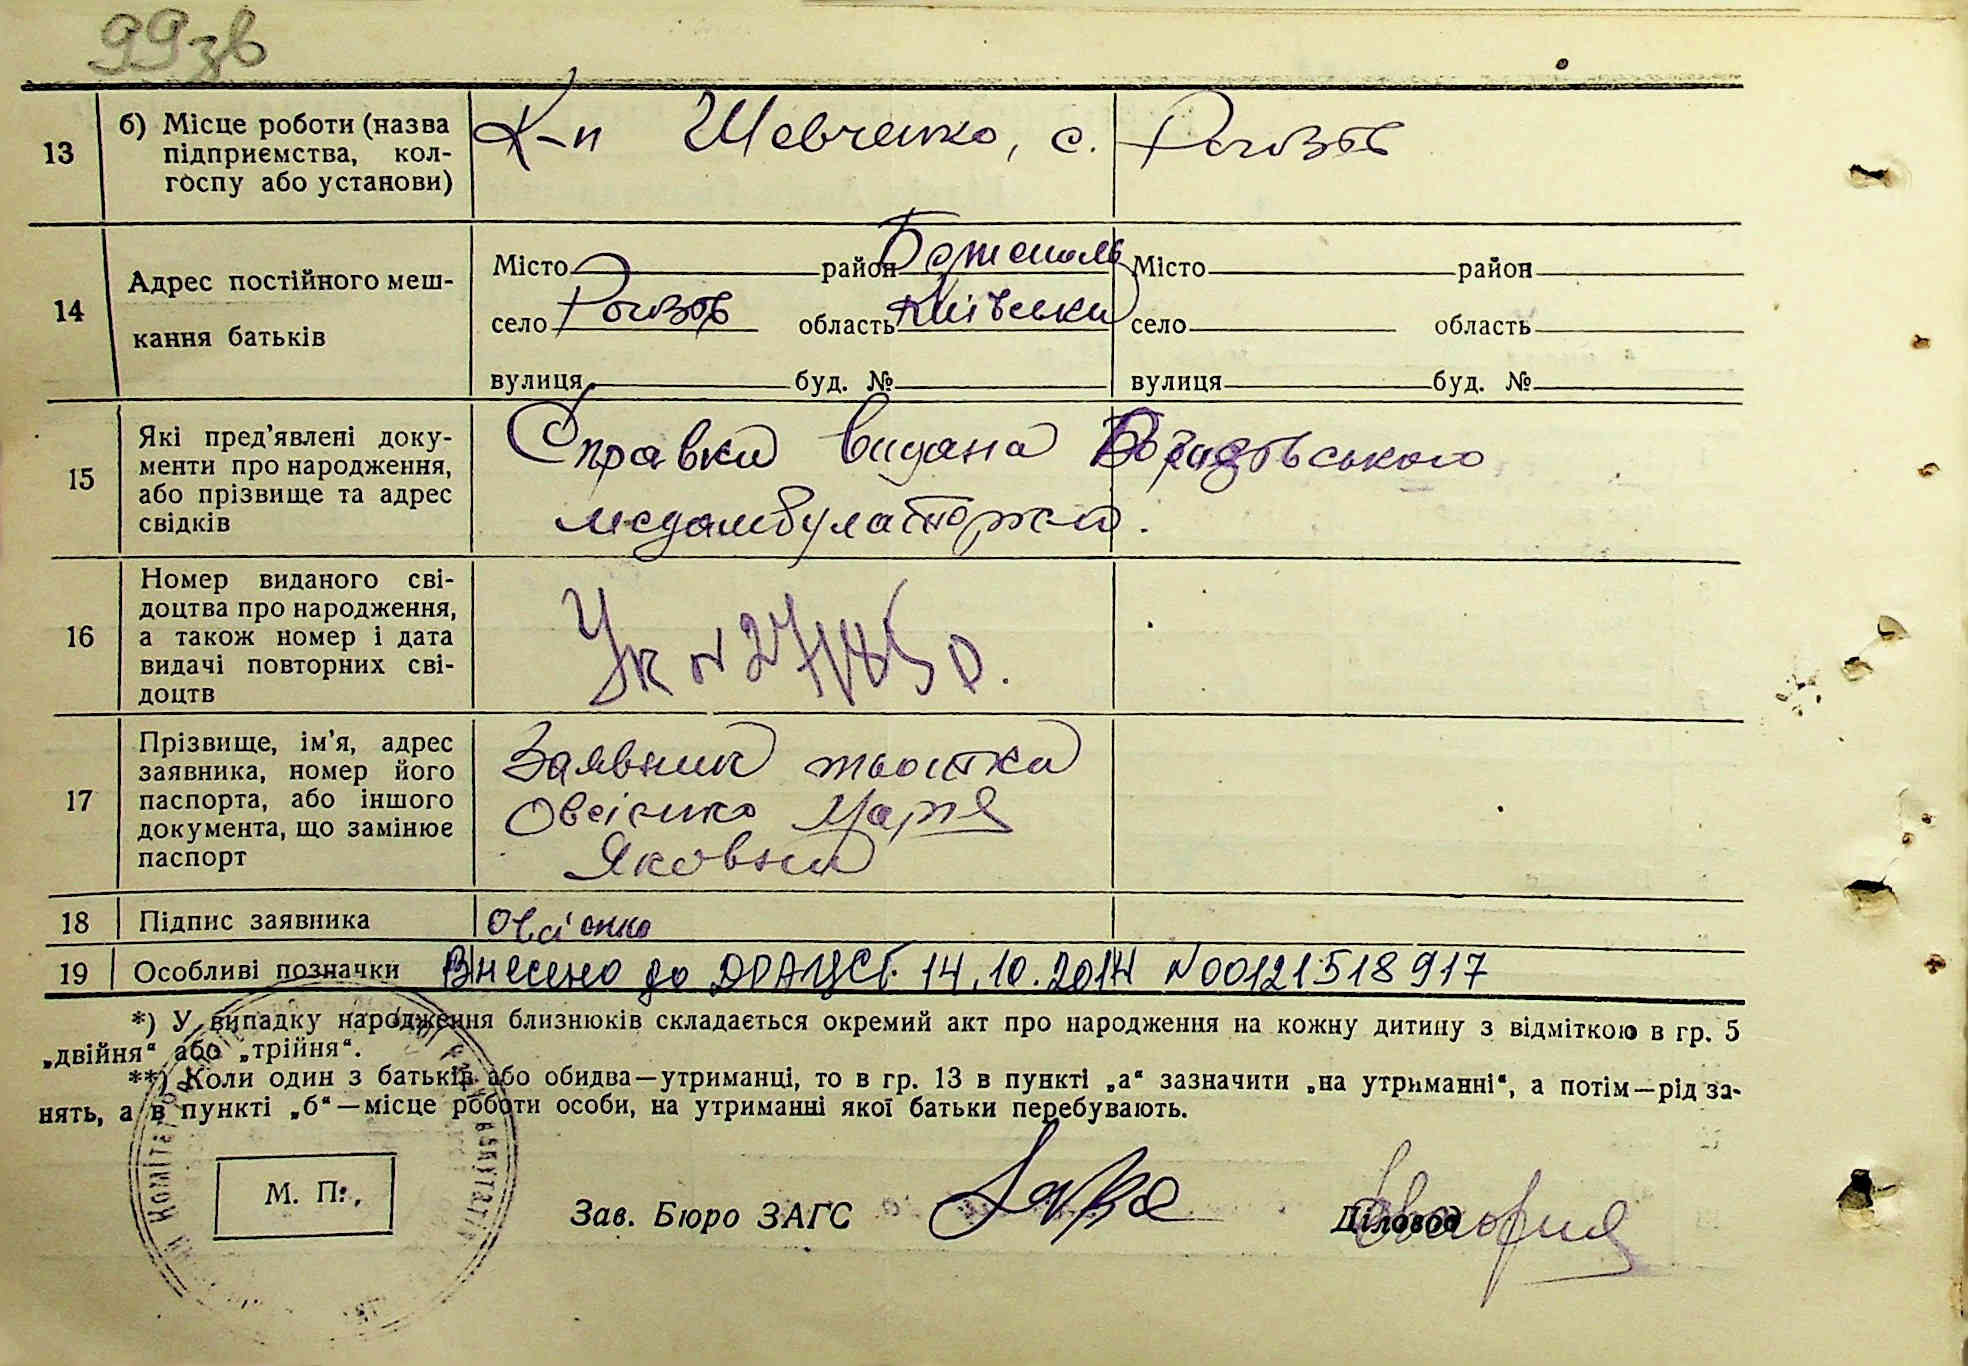 99зв
13 б) Місце роботи (назва підприємства, колгоспу або установи) К-п Шевченко, с. Рогозов
14 Адрес постійного мешкання батьків
Місто район Бориспіль Місто район
село Рогозов область Київська село область
вулиця буд. № вулиця буд. №
15 Які пред'явлені документи про народження, або прізвище та адрес свідків
Справка видана
медамбулаторією.
16 Номер виданого свідоцтва про народження, а також номер і дата видачі повторних свідоцтв
17 Прізвище, ім'я, адрес заявника, номер його паспорта, або іншого документа, що замінює паспорт
Заявник тьотка
Овсієнко Марія
Яковна
18 Підпис заявника Овсієнко
19 Особливі позначки Внесено до ДРАЦСГ 14.10.2014 №00121518917
*) У випадку народження близнюків складається окремий акт про народження на кожну дитину з відміткою в гр. 5
„двійня“ або „трійня“.
**) Коли один з батьків або обидва—утриманці, то в гр. 13 в пункті „а“ зазначити „на утриманні“, а потім—рід за-
нять, а в пункті „б“—місце роботи особи, на утриманні якої батьки перебувають.
М. П.
Зав. Бюро ЗАГС Діловод